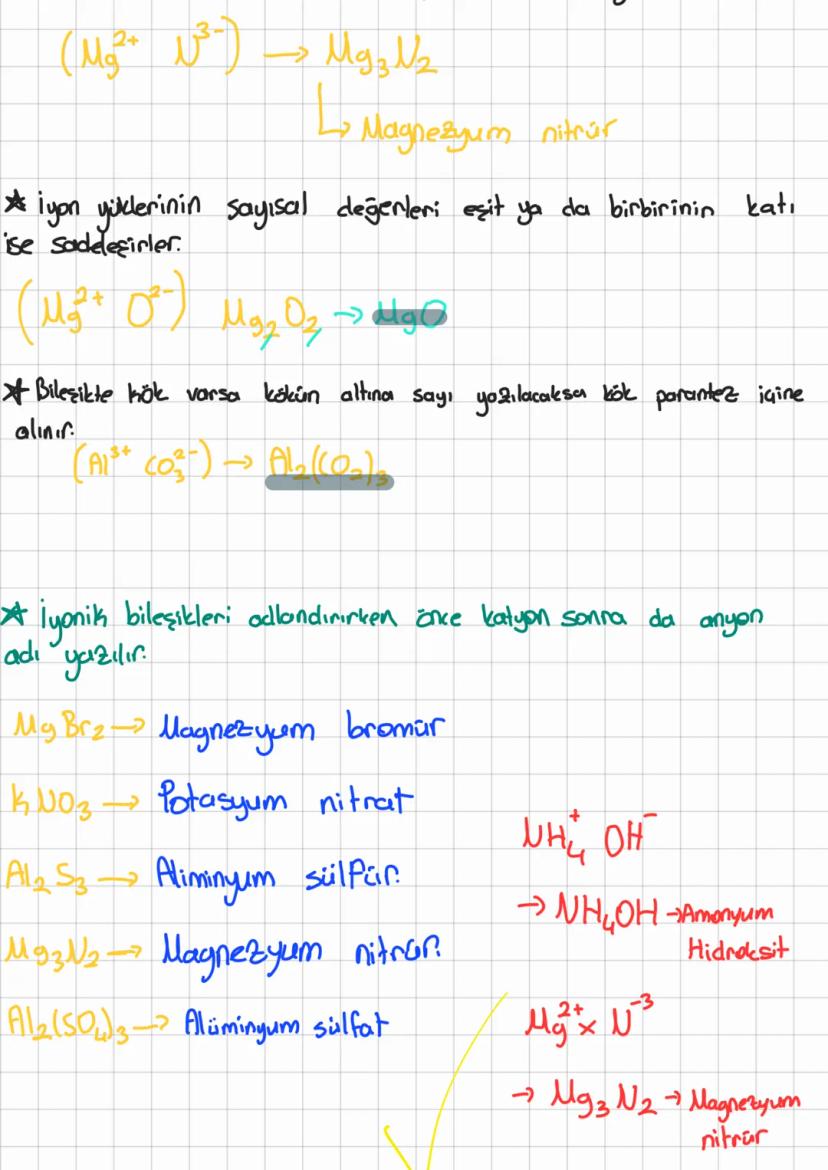 (Mg²⁺ N³⁻) → Mg₃N₂
↳ Magnezyum nitrür
★ İyon yüklerinin sayısal değerleri eşit ya da birbirinin katı
ise sadeleşirler.
(Mg²⁺ O²⁻) Mg₂O₂ → MgO
★ Bileşikte kök varsa kökün altına sayı yazılacaksa kök parantez içine
alınır.
(Al³⁺ CO₃²⁻) → Al₂(CO₂)₃
★ İyonik bileşikleri adlandırırken önce katyon sonra da anyon
adı yazılır.
MgBr₂ → Magnezyum bromür
KNO₃ → Potasyum nitrat
Al₂S₃ → Aliminyum sülfür.
Mg₃N₂ → Magnezyum nitrür.
Al₂(SO₄)₃ → Alüminyum sülfat
NH₄⁺ OH⁻
→ NH₄OH → Amonyum
Hidroksit
Mg²⁺ x N⁻³
→ Mg₃N₂ → Magnezyum
nitrür